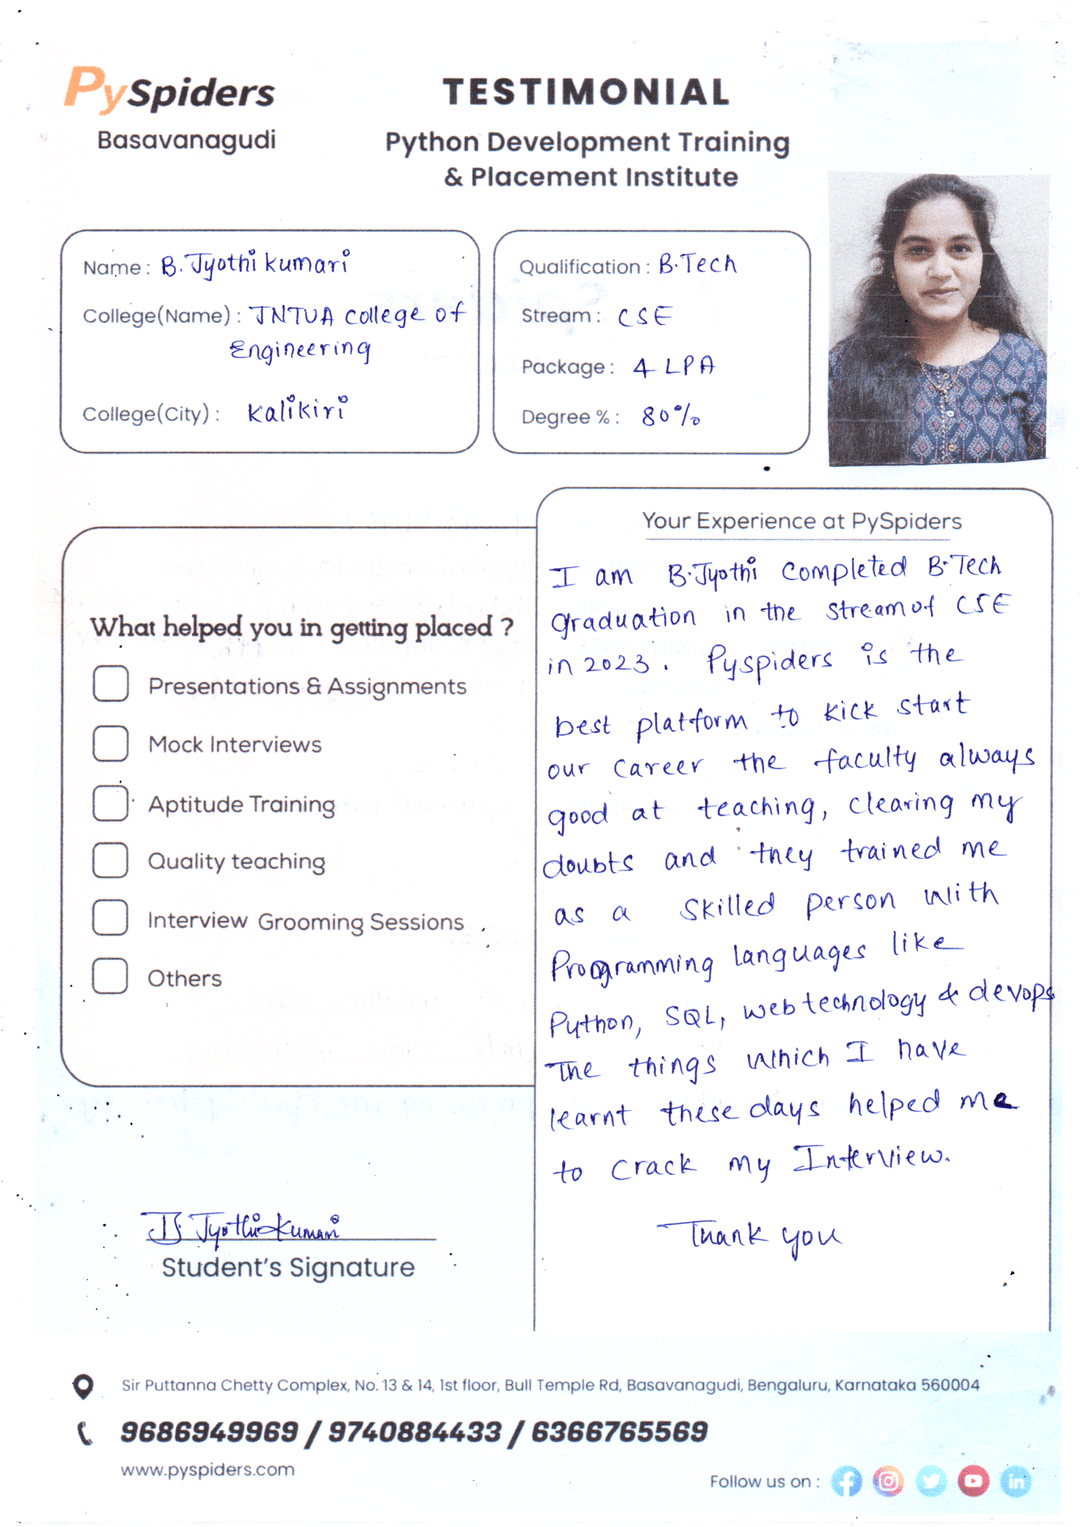 PySpiders
Basavanagudi
TESTIMONIAL
Python Development Training
& Placement Institute
Name : B. Jyothi kumari
College(Name) : JNTUA college of
Engineering
College(City) : Kalikiri
Qualification : B.Tech
Stream : CSE
Package : 4 LPA
Degree % : 80%
What helped you in getting placed ?
Presentations & Assignments
Mock Interviews
Aptitude Training
Quality teaching
Interview Grooming Sessions
Others
Your Experience at PySpiders
I am B.Jyothi completed B.Tech
graduation in the stream of CSE
in 2023. Pyspiders is the
best platform to kick start
our career the faculty always
good at teaching, clearing my
doubts and they trained me
as a skilled person with
Programming languages like
Python, SQL, web technology & devops
The things which I have
learnt these days helped me
to crack my Interview.
Thank you
B Jyothi Kumari
Student's Signature
Sir Puttanna Chetty Complex, No. 13 & 14, 1st floor, Bull Temple Rd, Basavanagudi, Bengaluru, Karnataka 560004
9686949969 / 9740884433 / 6366765569
www.pyspiders.com
Follow us on :